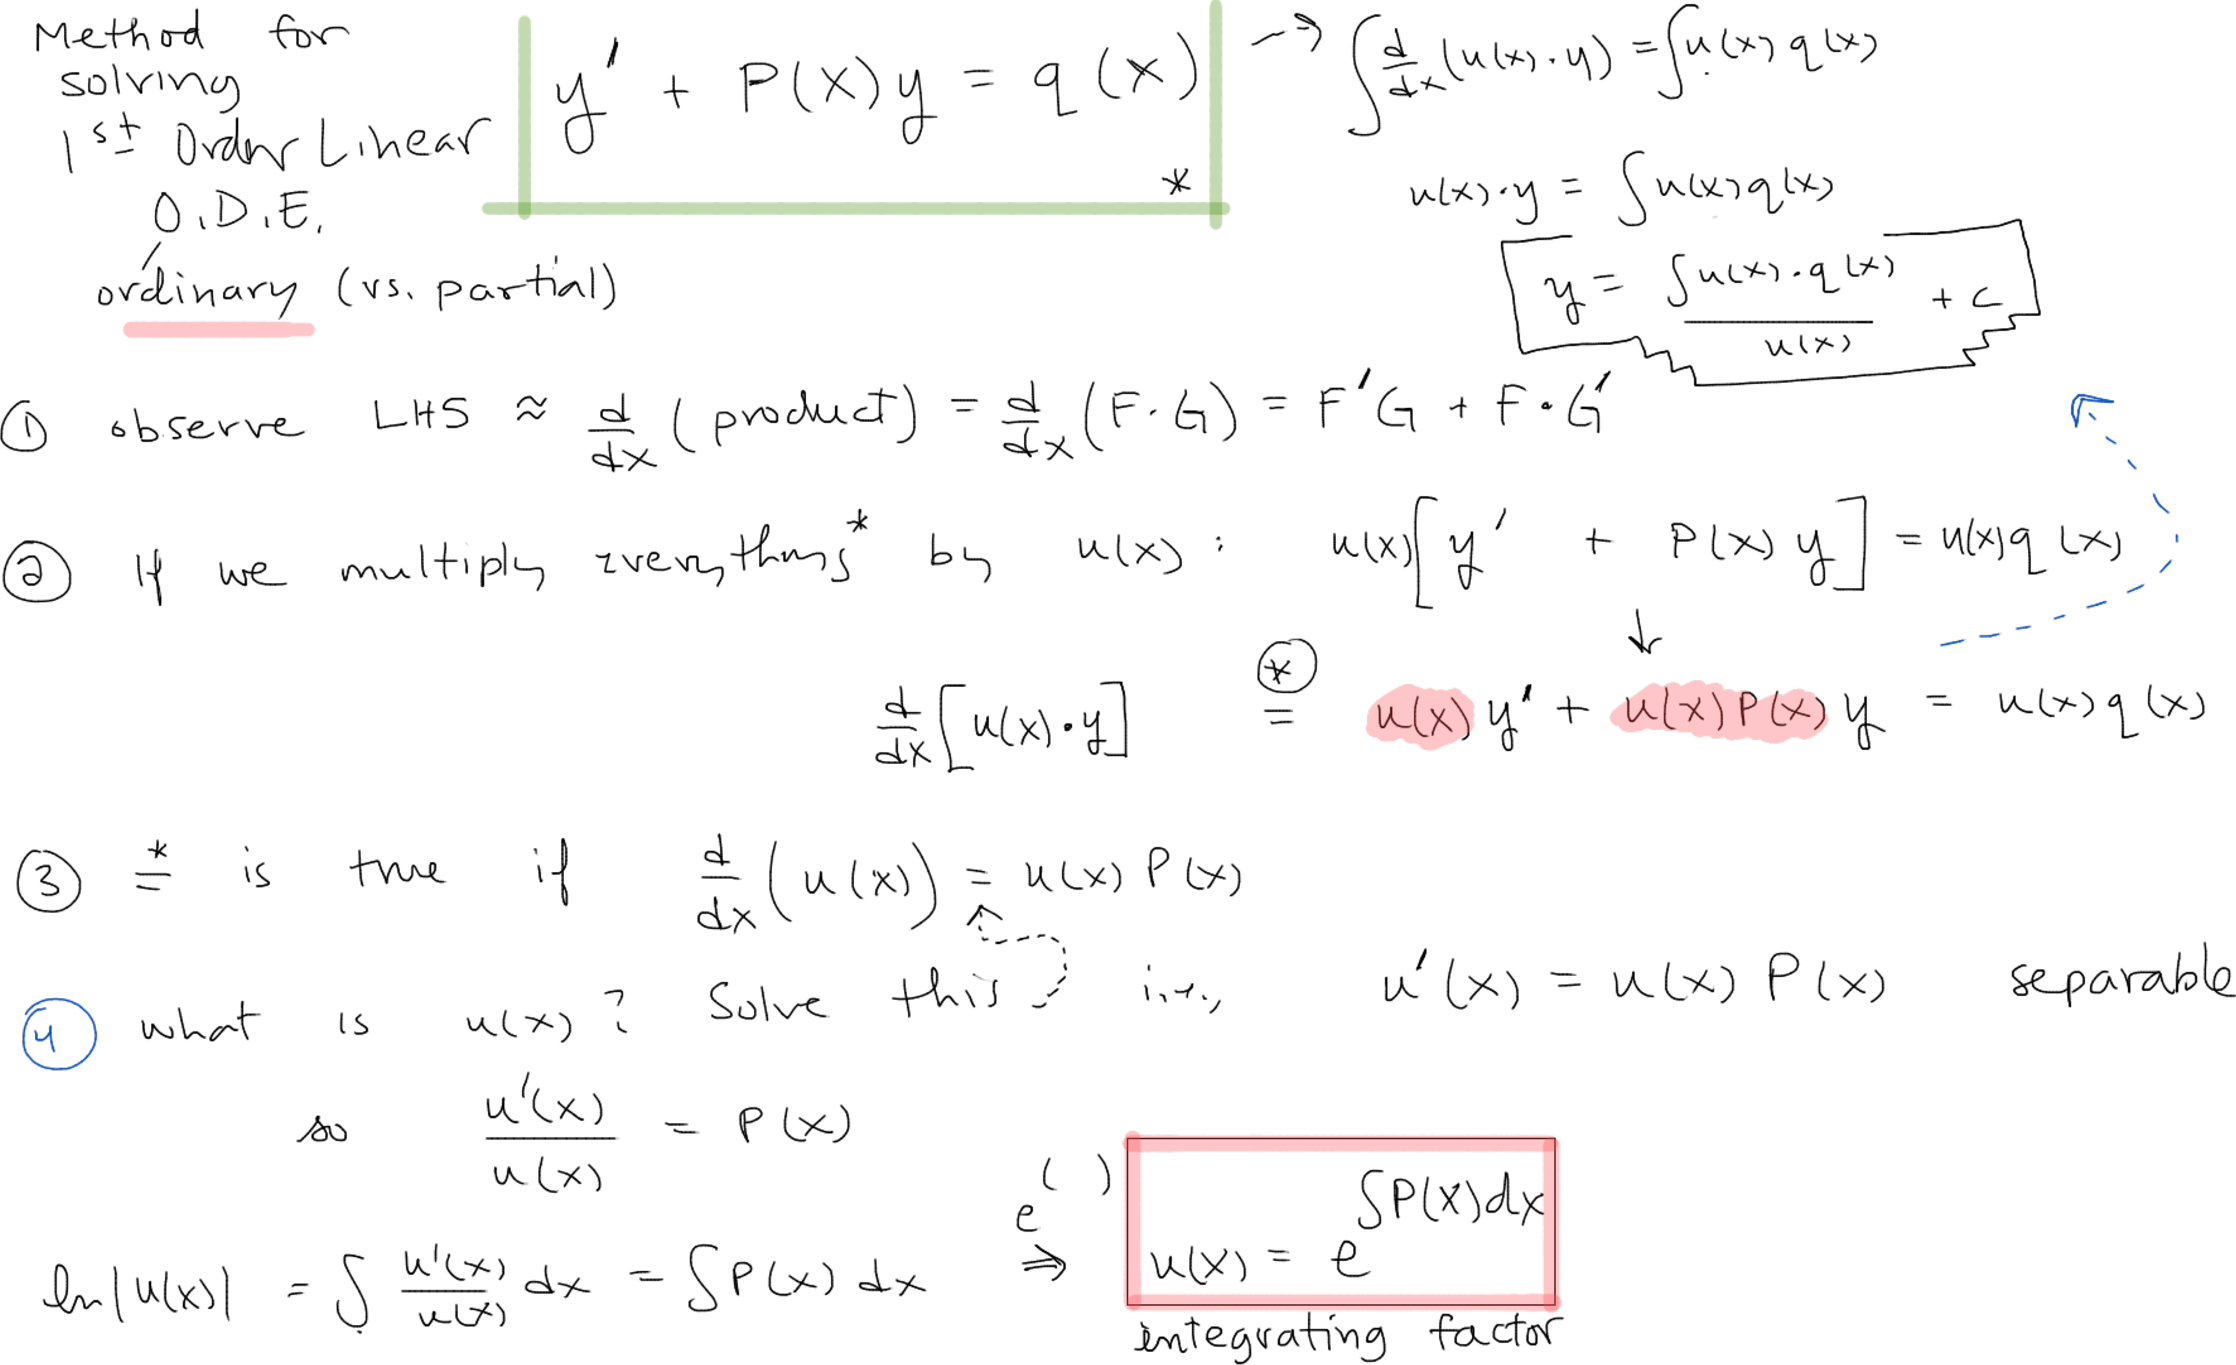 Method for
solving
1st Order Linear
O.D.E.
ordinary (vs. partial)
y' + P(x) y = q(x)
*
→ ∫ d/dx (u(x)·y) = ∫ u(x) q(x)
u(x)·y = ∫ u(x) q(x)
y = ∫ u(x)·q(x) / u(x) + c
① observe LHS ≈ d/dx (product) = d/dx (F·G) = F'G + F·G'
② If we multiply everything* by u(x): u(x)[y' + P(x) y] = u(x) q(x)
↓
d/dx [u(x)·y] ⊛= u(x) y' + u(x) P(x) y = u(x) q(x)
③ *= is true if d/dx (u(x)) = u(x) P(x)
④ what is u(x)? Solve this i.e., u'(x) = u(x) P(x) separable
so u'(x) / u(x) = P(x)
ln|u(x)| = ∫ u'(x)/u(x) dx = ∫ P(x) dx e^( ) ⇒ u(x) = e^∫P(x)dx
integrating factor